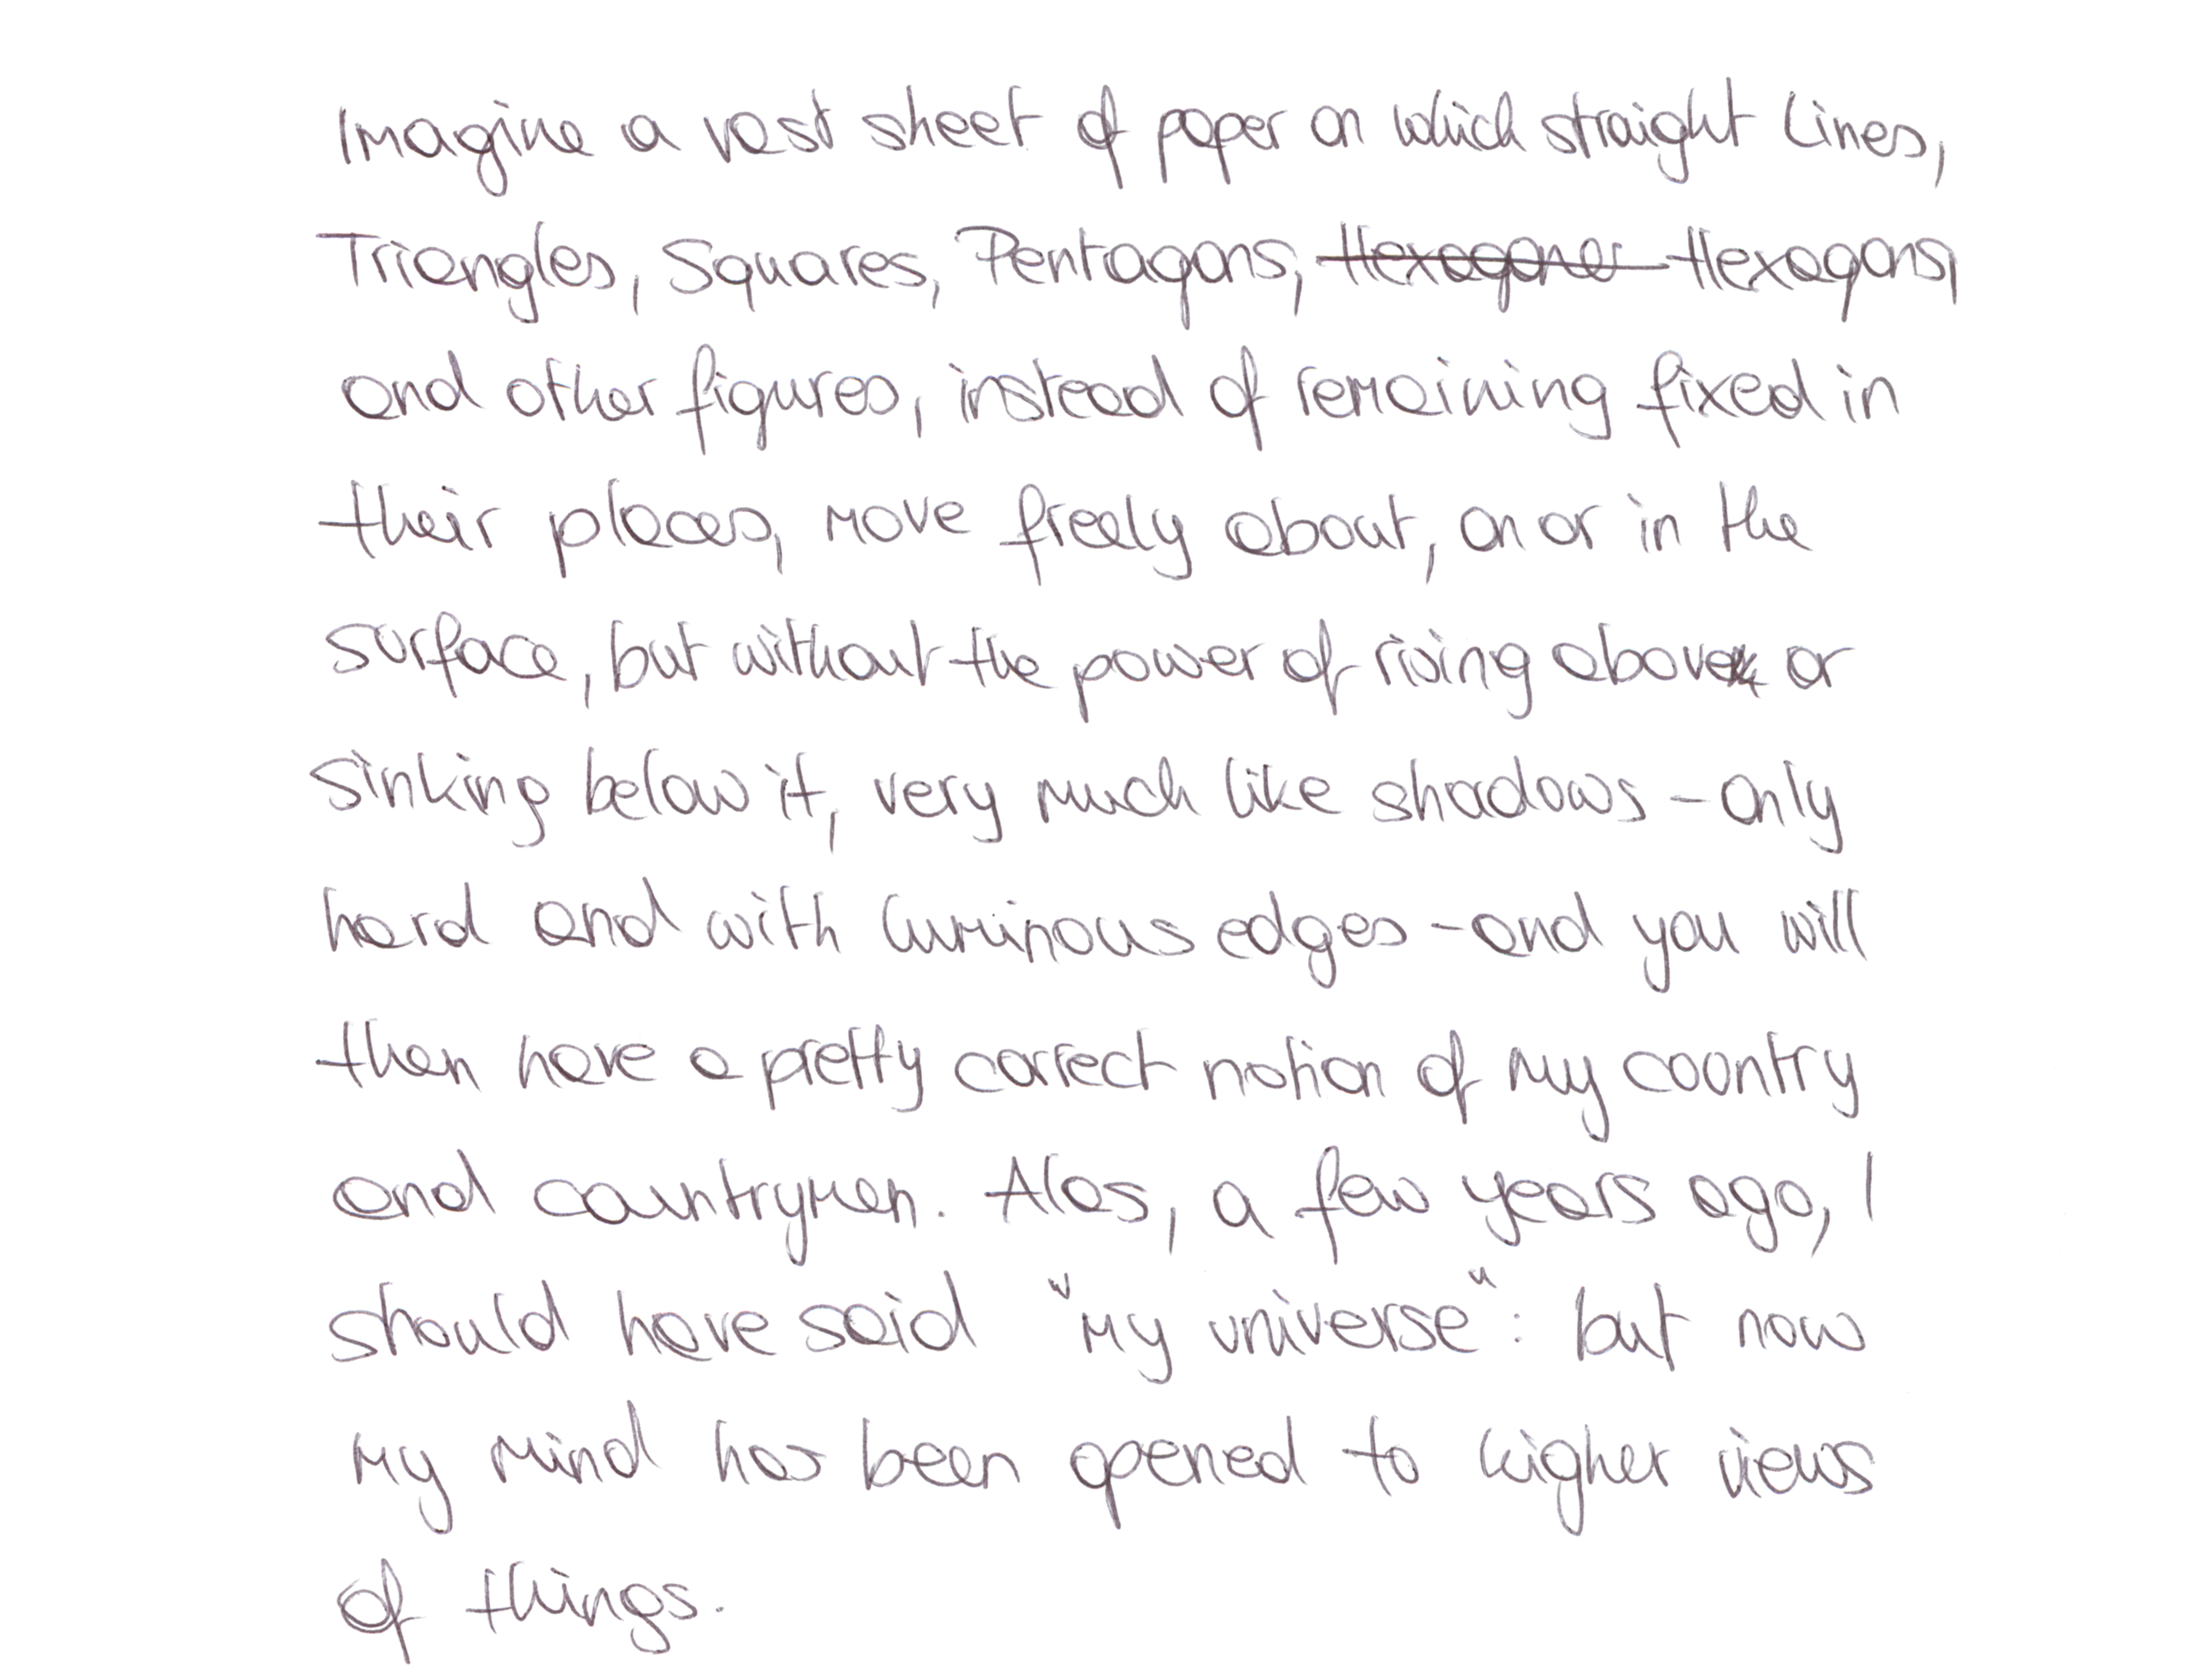 Imagine a vast sheet of paper on which straight Lines,
Triangles, Squares, Pentagons, Hexagons,
and other figures, instead of remaining fixed in
their places, move freely about, on or in the
surface, but without the power of rising above or
sinking below it, very much like shadows - only
hard and with luminous edges - and you will
then have a pretty correct notion of my country
and countrymen. Alas, a few years ago, I
should have said "my universe": but now
my mind has been opened to higher views
of things.